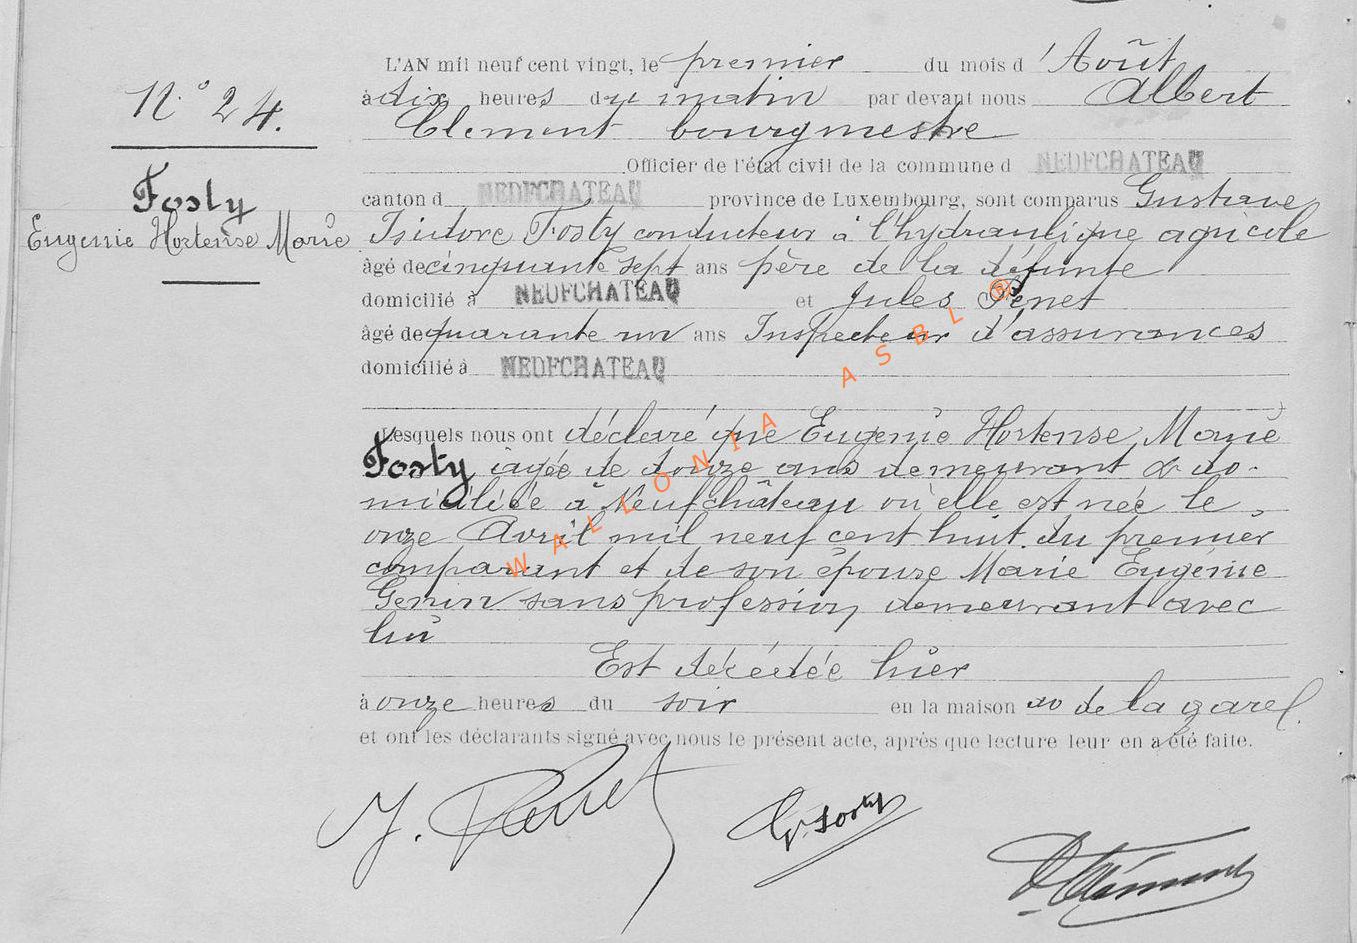 N° 24.
Fosty
Eugenie Hortense Marie
L'AN mil neuf cent vingt, le premier du mois d'Août
à dix heures du matin par devant nous Albert
Clement bourgmestre
Officier de l'état civil de la commune d NEUFCHATEAU
canton d NEUFCHATEAU province de Luxembourg, sont comparus Gustave
Isidore Fosty conducteur à l'hydraulique agricole
âgé de cinquante sept ans père de la défunte
domicilié à NEUFCHATEAU et Jules Penet
âgé de quarante ans Inspecteur d'assurances
domicilié à NEUFCHATEAU
Lesquels nous ont déclaré que Eugenie Hortense Marie
Fosty âgée de douze ans demeurant & do-
miciliée à Neufchâteau où elle est née le
onze Avril mil neuf cent huit du premier
comparant et de son épouse Marie Eugénie
Genin sans profession, demeurant avec
lui
Est décédée hier
à onze heures du soir en la maison av de la gare
et ont les déclarants signé avec nous le présent acte, après que lecture leur en a été faite.
J. Penet G. Fosty
A Clément
WALLONIA ASBL ®